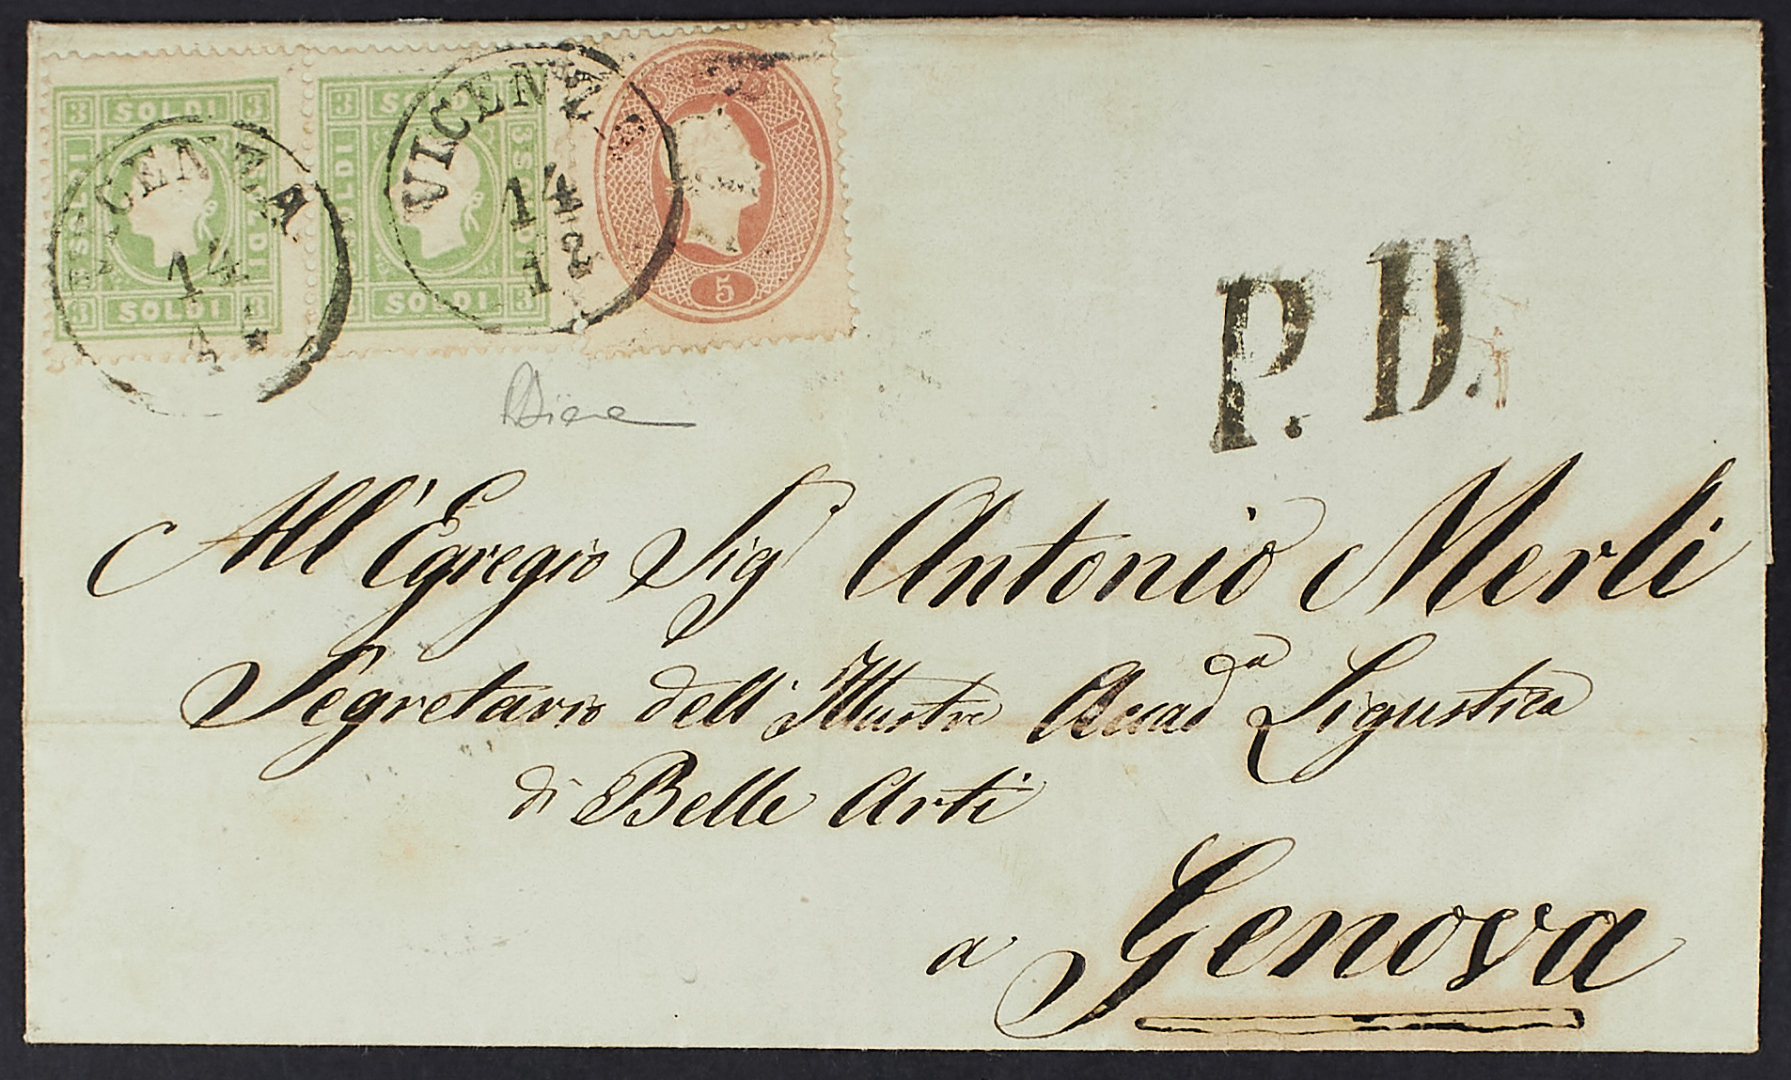 3 SOLDI 3
SOLDI
SOLDI
3 SOLDI 3
3 SOLDI 3
SOLDI
3 SOLDI 3
5 SOLDI
5
VICENZA
14
12
VICENZA
14
12
P. D.
Diena
All'Egregio Sigr Antonio Merli
Segretario dell'Illustre Accad.a Ligustica
di Belle Arti
a Genova